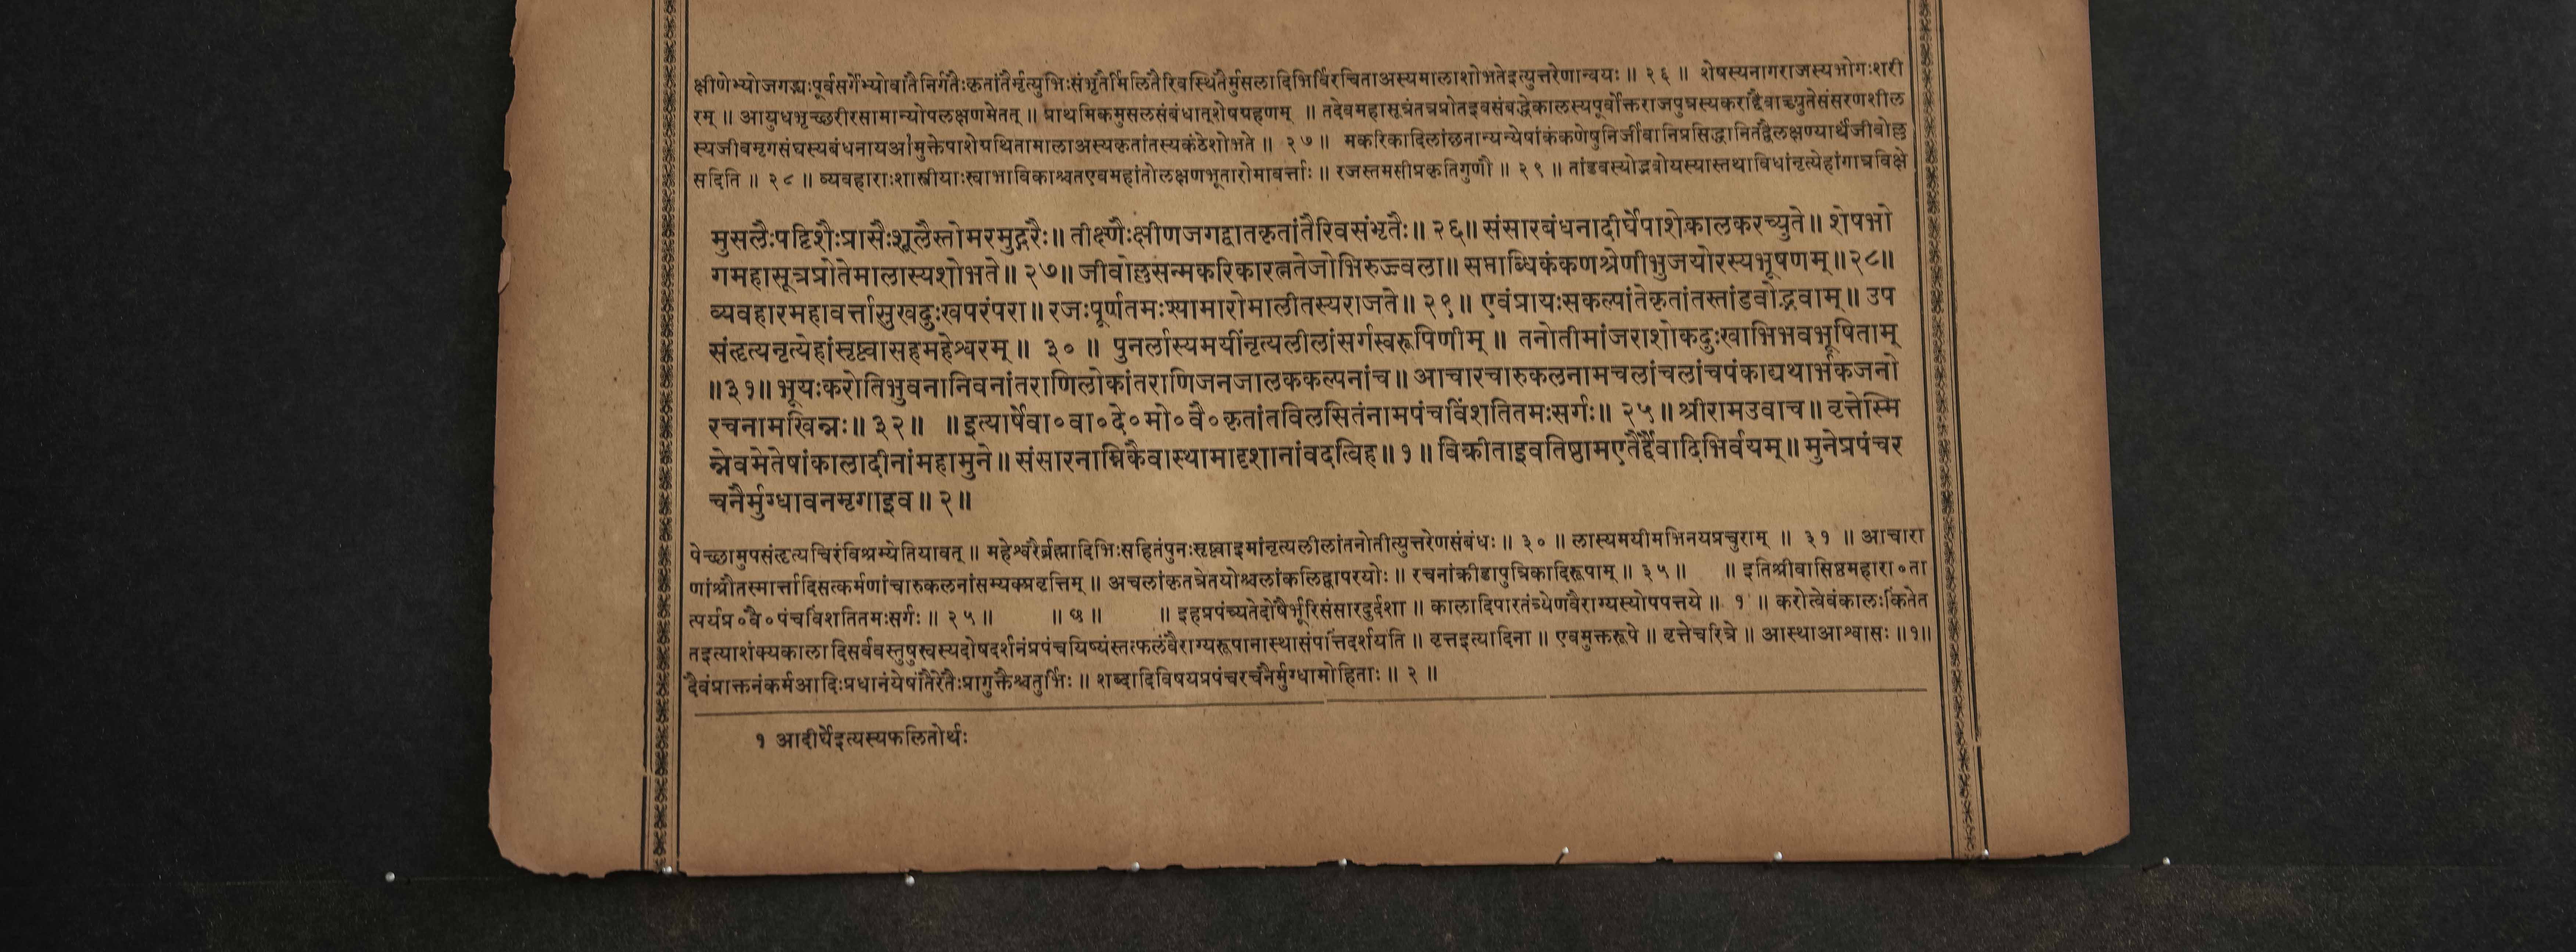 क्षीणेभ्योजगद्भ्यःपूर्वसर्गेभ्योवांतैनिर्गतैःकृतांतैर्मृत्युभिःसंभृतैर्मिलितैरिवस्थितैर्मुसलादिभिर्विरचिताअस्यमालाशोभतेइत्युत्तरेणान्वयः ॥ २६ ॥ शेषस्यनागराजस्यभोगःशरी
रम् ॥ आयुधभृच्छरीरसामान्योपलक्षणमेतत् ॥ प्राथमिकमुसलसंबंधात्शेषग्रहणम् ॥ तदेवमहासूत्रंतत्रप्रोतइवसंबद्धेकालस्यपूर्वोक्तराजपुत्रस्यकराद्दैवाच्च्युतेसंसरणशील
स्यजीवमृगसंघस्यबंधनायआमुक्तेपाशेग्रथितामालाअस्यकृतांतस्यकंठेशोभते ॥ २७ ॥ मकरिकादिलांछनान्यन्येषांकंकणेषुनिर्जीवानिप्रसिद्धानितद्वैलक्षण्यार्थंजीवोल्ल
सदिति ॥ २८ ॥ व्यवहाराःशास्त्रीयाःस्वाभाविकाश्चतएवमहांतोलक्षणभूतारोमावर्त्ताः ॥ रजस्तमसीप्रकृतिगुणौ ॥ २९ ॥ तांडवस्योद्भवोयस्यास्तथाविधांनृत्येहांगात्रविक्षे
मुसलैःपट्टिशैःप्रासैःशूलैस्तोमरमुद्गरैः ॥ तीक्ष्णैःक्षीणजगद्वातकृतांतैरिवसंभृतैः ॥ २६ ॥ संसारबंधनादीर्घेपाशेकालकरच्युते ॥ शेषभो
गमहासूत्रप्रोतेमालास्यशोभते ॥ २७ ॥ जीवोल्लसन्मकरिकारत्नतेजोभिरुज्ज्वला ॥ सप्ताब्धिकंकणश्रेणीभुजयोरस्यभूषणम् ॥ २८ ॥
व्यवहारमहावर्त्तासुखदुःखपरंपरा ॥ रजःपूर्णतमःश्यामारोमालीतस्यराजते ॥ २९ ॥ एवंप्रायःसकल्पांतेकृतांतस्तांडवोद्भवाम् ॥ उप
संहृत्यनृत्येहांसृष्ट्वासहमहेश्वरम् ॥ ३० ॥ पुनर्लास्यमयींनृत्यलीलांसर्गस्वरूपिणीम् ॥ तनोतीमांजराशोकदुःखाभिभवभूषिताम्
॥ ३१ ॥ भूयःकरोतिभुवनानिवनांतराणिलोकांतराणिजनजालककल्पनांच ॥ आचारचारुकलनामचलांचलांचपंकाद्यथार्भकजनो
रचनामखिन्नः ॥ ३२ ॥ ॥ इत्यार्षेवा०वा०दे०मो०वै०कृतांतविलसितंनामपंचविंशतितमःसर्गः ॥ २५ ॥ श्रीरामउवाच ॥ वृत्तेस्मि
न्नेवमेतेषांकालादीनांमहामुने ॥ संसारनाम्निकैवास्थामादृशानांवदत्विह ॥ १ ॥ विक्रीताइवतिष्ठामएतैर्दैवादिभिर्वयम् ॥ मुनेप्रपंचर
चनैर्मुग्धावनमृगाइव ॥ २ ॥
पेच्छामुपसंहृत्यचिरंविश्रम्येतियावत् ॥ महेश्वरैर्ब्रह्मादिभिःसहितंपुनःसृष्ट्वाइमांनृत्यलीलांतनोतीत्युत्तरेणसंबंधः ॥ ३० ॥ लास्यमयीमभिनयप्रचुराम् ॥ ३१ ॥ आचारा
णांश्रौतस्मार्त्तादिसत्कर्मणांचारुकलनांसम्यक्प्रवृत्तिम् ॥ अचलांकृतत्रेतयोश्चलांकलिद्वापरयोः ॥ रचनांक्रीडापुत्रिकादिरूपाम् ॥ ३५ ॥ ॥ इतिश्रीवासिष्ठमहारा०ता
त्पर्यप्र०वै०पंचविंशतितमःसर्गः ॥ २५ ॥ ॥ छ ॥ ॥ इहप्रपंच्यतेदोषैर्भूरिसंसारदुर्दशा ॥ कालादिपारतंत्र्येणवैराग्यस्योपपत्तये ॥ १ ॥ करोत्वेवंकालःकिंतेत
तइत्याशंक्यकालादिसर्ववस्तुषुस्वस्यदोषदर्शनंप्रपंचयिष्यंस्तत्फलंवैराग्यरूपानास्थासंपत्तिंदर्शयति ॥ वृत्तइत्यादिना ॥ एवमुक्तरूपे ॥ वृत्तेचरित्रे ॥ आस्थाआश्वासः ॥ १ ॥
दैवंप्राक्तनंकर्मआदिःप्रधानंयेषांतैरेतैःप्रागुक्तैश्चतुर्भिः ॥ शब्दादिविषयप्रपंचरचनैर्मुग्धामोहिताः ॥ २ ॥
१ आदीर्घेइत्यस्यफलितोर्थः